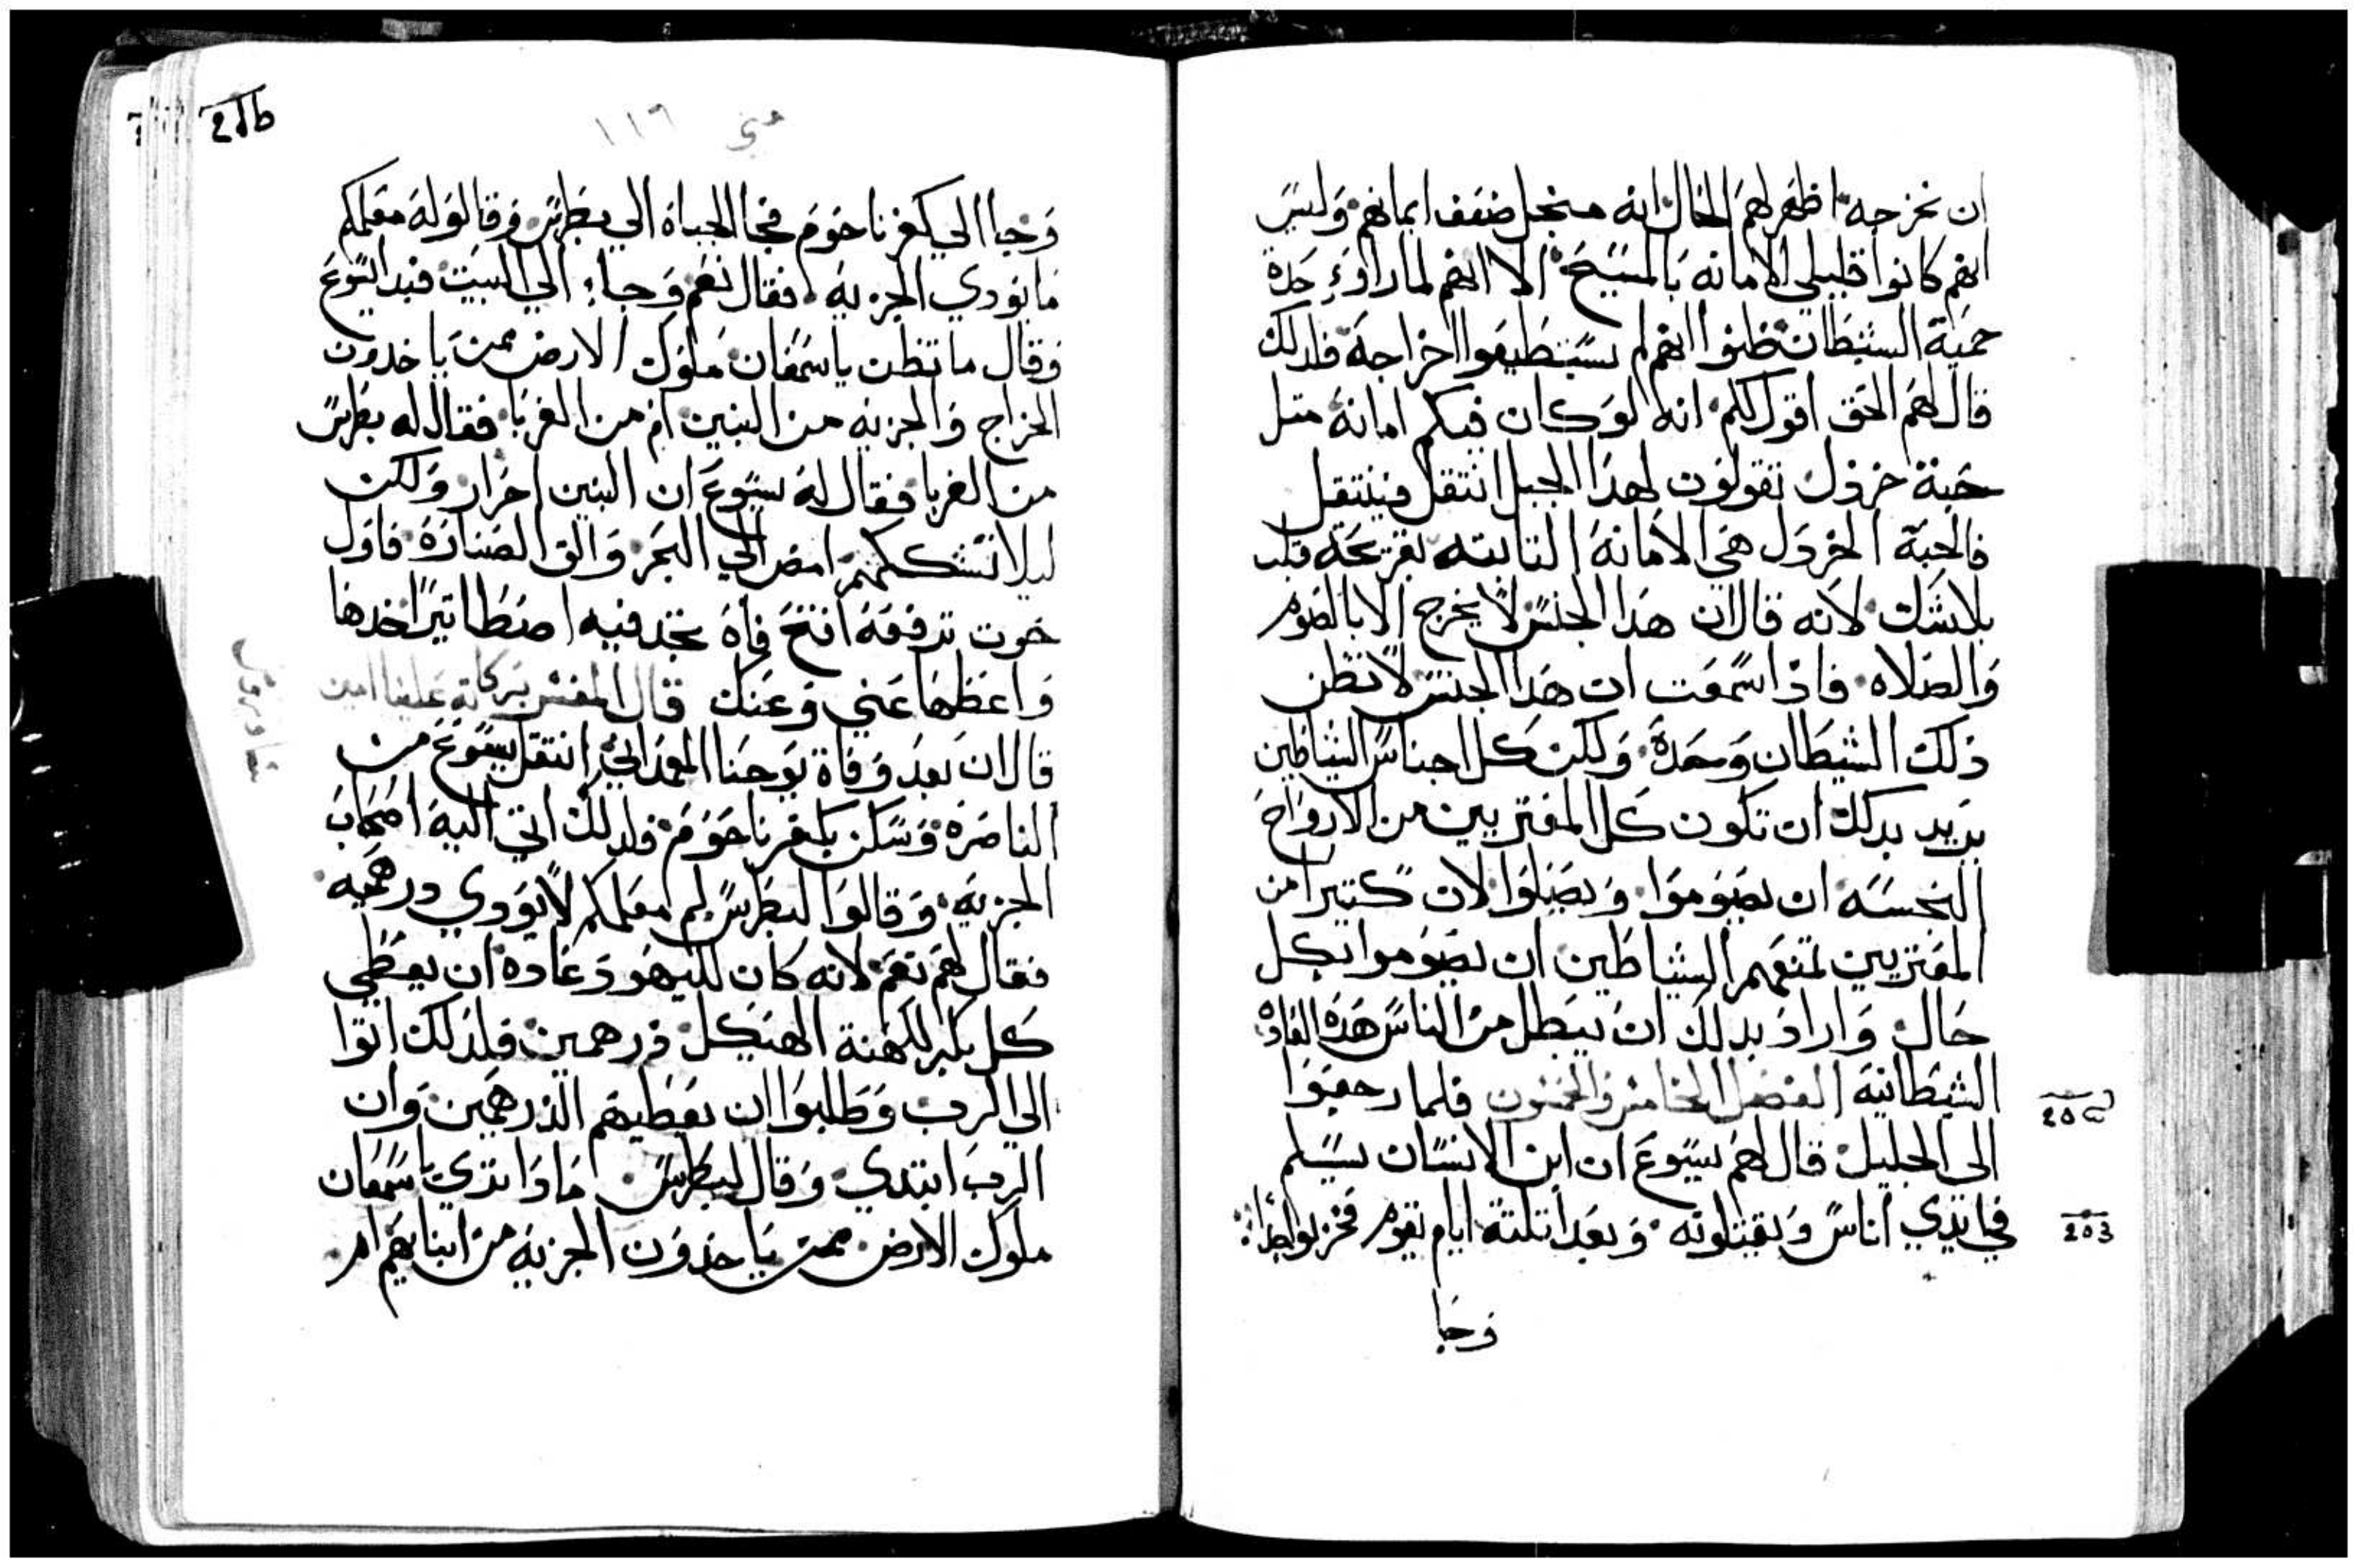 ان نخرجه اظهر لهم الحال انه من جل ضعف ايمانهم وليس
انهم كانوا قليلي الامانه بالمسيح الا انهم لما راوء حدة
حمية الشيطان ظنوا انهم لم يستطيعوا اخراجه فلدلك
قال لهم الحق اقول لكم انه لو كان فيكم امانه متل
حبة خردل تقولون لهدا الجبل انتقل فينتقل
فالحبة الخردل هي الامانه التابته بقريحة قلب
بلا شك لانه قال ان هدا الجنس لا يخرج الا بالصوم
والصلاه فادا سمعت ان هدا الجنس لا تظن
دلك الشيطان وحده ولكن كل اجناس الشياطين
يريد بدلك ان تكون كل المعتريين من الارواح
النجسه ان يصوموا ويصلوا لان كتيرا من
المعتريين تمنعهم الشياطين ان يصوموا بكل
حال واراد بدلك ان يبطل من الناس هده العاده
الشيطانية الفصل الخامس والخمسون فلما رجعوا
الى الجليل قال لهم يسوع ان ابن الانسان يسلم
في ايدي اناس ويقتلونه وبعد تلتة ايام يقوم فحزنوا جدا
وجا
متي ١١٦
وجاا الي كفرناحوم فجا الجباة الي بطرس وقالو له معلمكم
ما يودي الجزيه فقال نعم وجاء الي البيت فبدا يسوع
وقال ما تظن يا سمعان ملوك الارض ممن ياخدون
الخراج والجزيه من البنين ام من الغربا فقال له بطرس
من الغربا فقال له يسوع ان البنين احرار ولكن
ليلا نشككهم امض الي البحر والق الصنارة فاول
حوت ترفعه افتح فاه تجد فيه اصطاتيرا خدها
واعطها عني وعنك قال المفسر بركاته علينا امين
قال ان بعد وفاة يوحنا المعمداني انتقل يسوع من
الناصره وسكن بكفرناحوم فلدلك اتي اليه اصحاب
الجزيه وقالوا لبطرس لم معلمكم لا يودي درهميه
فقال لهم نعم لانه كان لليهود عاده ان يعطي
كل بكر لكهنة الهيكل درهمين فلدلك اتوا
الي الرب وطلبوا ان يعطيهم الدرهمين وان
الرب ابتدي وقال لبطرس مادا تري يا سمعان
ملوك الارض ممن ياخدون الجزيه من ابنايهم ام